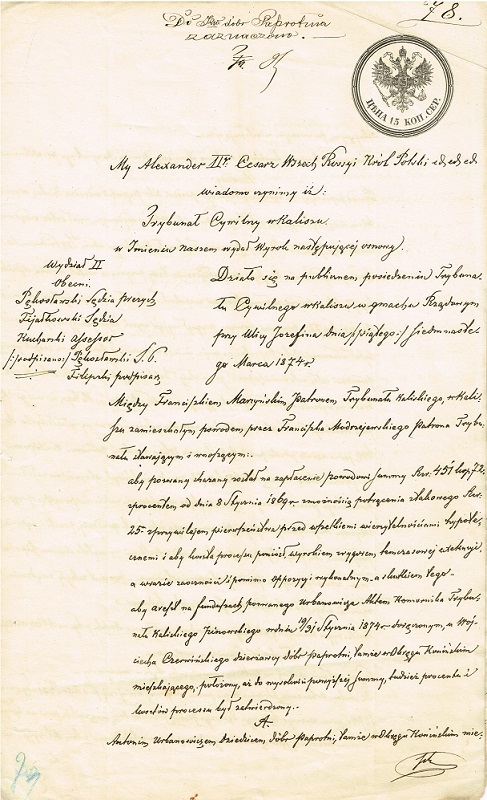 78.
Do dóbr Paprotnia
zaznaczono.
ЦѢНА 15 КОП. СЕР.
My Alexander II Cesarz Wszech Rossyi Król Polski etc, etc, etc
wiadomo czynimy iż:
Trybunał Cywilny w Kaliszu
w Imieniu Naszem wydał Wyrok następującej osnowy.
Wydział II
Obecni
Sędzia Prezyd.
Fijałkowski Sędzia
Kucharski Assessor
/:podpisano:/ S. P.
Filipski podpisarz
Działo się na publicznem posiedzeniu Trybuna-
łu Cywilnego w Kaliszu w gmachu Rządowym
przy Ulicy Józefina dnia /:piątego:/ siedmnaste-
go Marca 1874 r.
Między Franciszkiem Patronem Trybunału Kaliskiego, w Kali-
szu zamieszkałym, powodem przez Franciszka Modrzejewskiego Patrona Trybu-
nału stawającym i wnoszącym:
aby pozwany skazany został na zapłacenie powodowi summy Rsr. 451 kop. 72
z procentem od dnia 8 Stycznia 1869 r. z możnością potrącenia Rsr.
25. z przywilejem pierwszeństwa przed wszelkiemi wierzytelnościami hypote-
cznemi i aby koszta processu poniósł, wyrokiem tymczasowej exekucyi
a w razie zaoczności i pomimo oppozycyi wykonalnym, a skutkiem tego
aby areszt na funduszach pozwanego Urbanowicza Aktem Komornika Trybu-
nału Kaliskiego w dniu Stycznia 1874 r. doręczonym, u Woj-
ciecha Czerwińskiego dzierżawcy dóbr Paprotni, tamże w Okręgu Konińskim
mieszkającego, położony, aż do wysokości powyższej summy, tudzież procentu i
kosztów processu był zatwierdzony.
A.
Antonim Urbanowiczem Dziedzicem dóbr Paprotni, tamże w Okręgu Konińskim mie-